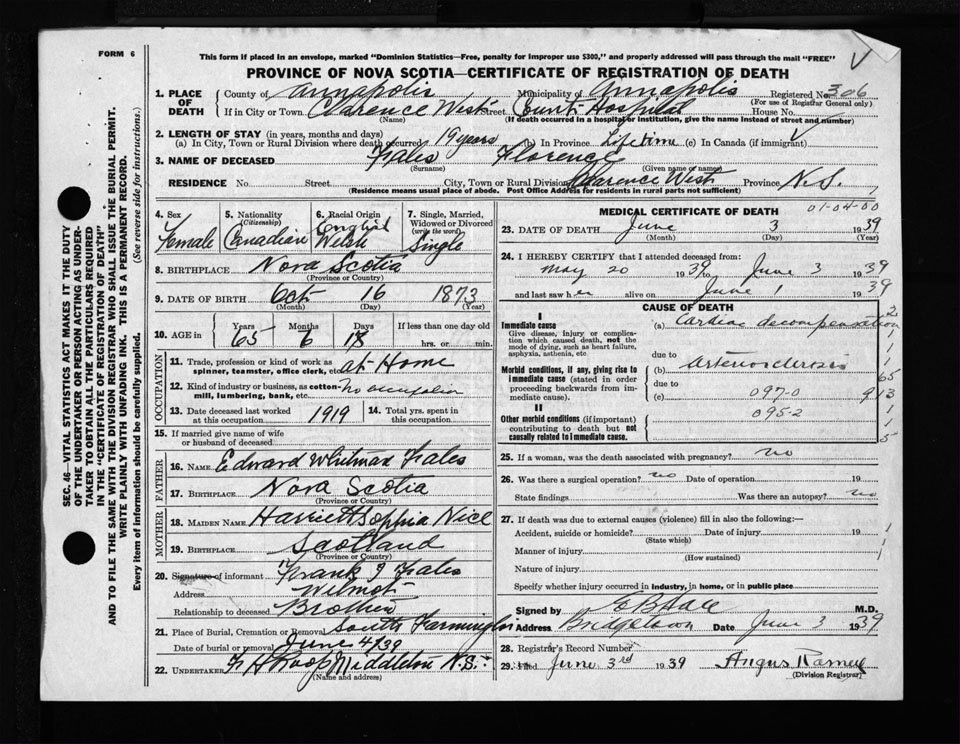 FORM 6
This form if placed in an envelope, marked "Dominion Statistics—Free, penalty for improper use $300," and properly addressed will pass through the mail "FREE"
PROVINCE OF NOVA SCOTIA—CERTIFICATE OF REGISTRATION OF DEATH
1. PLACE OF DEATH County of Annapolis Municipality of Annapolis Registered No. 306
(For use of Registrar General only)
If in City or Town Clarence West Street County Hospital House No.
(Name) (If death occurred in a hospital or institution, give the name instead of street and number)
2. LENGTH OF STAY (in years, months and days)
(a) In City, Town or Rural Division where death occurred 19 years (b) In Province Lifetime (c) In Canada (if immigrant)
3. NAME OF DECEASED Fales Florence
(Surname) (Given name or names)
RESIDENCE No. Street City, Town or Rural Division Clarence West Province N.S.
(Residence means usual place of abode. Post Office Address for residents in rural parts not sufficient)
SEC. 46—VITAL STATISTICS ACT MAKES IT THE DUTY
OF THE UNDERTAKER OR PERSON ACTING AS UNDER-
TAKER TO OBTAIN ALL THE PARTICULARS REQUIRED
IN THE "CERTIFICATE OF REGISTRATION OF DEATH"
AND TO FILE THE SAME WITH THE DIVISION REGISTRAR WHO SHALL ISSUE THE BURIAL PERMIT.
WRITE PLAINLY WITH UNFADING INK. THIS IS A PERMANENT RECORD.
Every item of information should be carefully supplied. (See reverse side for instructions.)
4. Sex Female
5. Nationality (Citizenship) Canadian
6. Racial Origin English Welsh
7. Single, Married, Widowed or Divorced (write the word) Single
8. BIRTHPLACE Nova Scotia
(Province or Country)
9. DATE OF BIRTH Oct 16 1873
(Month) (Day) (Year)
10. AGE in Years 65 Months 6 Days 18 If less than one day old hrs. or min.
OCCUPATION
11. Trade, profession or kind of work as spinner, teamster, office clerk, etc. at Home
12. Kind of industry or business, as cotton-mill, lumbering, bank, etc. No occupation
13. Date deceased last worked at this occupation 1919
14. Total yrs. spent in this occupation
15. If married give name of wife or husband of deceased
FATHER
16. NAME Edward Whitman Fales
17. BIRTHPLACE Nova Scotia
(Province or Country)
MOTHER
18. MAIDEN NAME Harriett Sophia Nice
19. BIRTHPLACE Scotland
(Province or Country)
20. Signature of informant Frank J Fales
Address Wilmot
Relationship to deceased Brother
21. Place of Burial, Cremation or Removal South Farmington
Date of burial or removal June 4/39
22. UNDERTAKER Middleton N.S.
(Name and address)
MEDICAL CERTIFICATE OF DEATH 01-04-00
23. DATE OF DEATH June 3 1939
(Month) (Day) (Year)
24. I HEREBY CERTIFY that I attended deceased from:
May 20 1939 to June 3 1939
and last saw her alive on June 1 1939
CAUSE OF DEATH
I
Immediate cause (a) Cardiac decompensation
Give disease, injury or complication which caused death, not the mode of dying, such as heart failure, asphyxia, asthenia, etc.
due to
Morbid conditions, if any, giving rise to immediate cause (stated in order proceeding backwards from immediate cause). (b) Arteriosclerosis
due to
(c) 097-0
II
095-2
Other morbid conditions (if important) contributing to death but not causally related to immediate cause.
2
1
1
1
65
9 13
1
1
5
25. If a woman, was the death associated with pregnancy? no
26. Was there a surgical operation? no Date of operation 19
State findings Was there an autopsy? no
27. If death was due to external causes (violence) fill in also the following:—
Accident, suicide or homicide? Date of injury 19
(State which)
Manner of injury
(How sustained)
Nature of injury
Specify whether injury occurred in industry, in home, or in public place
Signed by M.D.
Address Bridgetown Date June 3 1939
28. Registrar's Record Number
29. Filed June 3rd 1939 Angus Ramey
(Division Registrar)